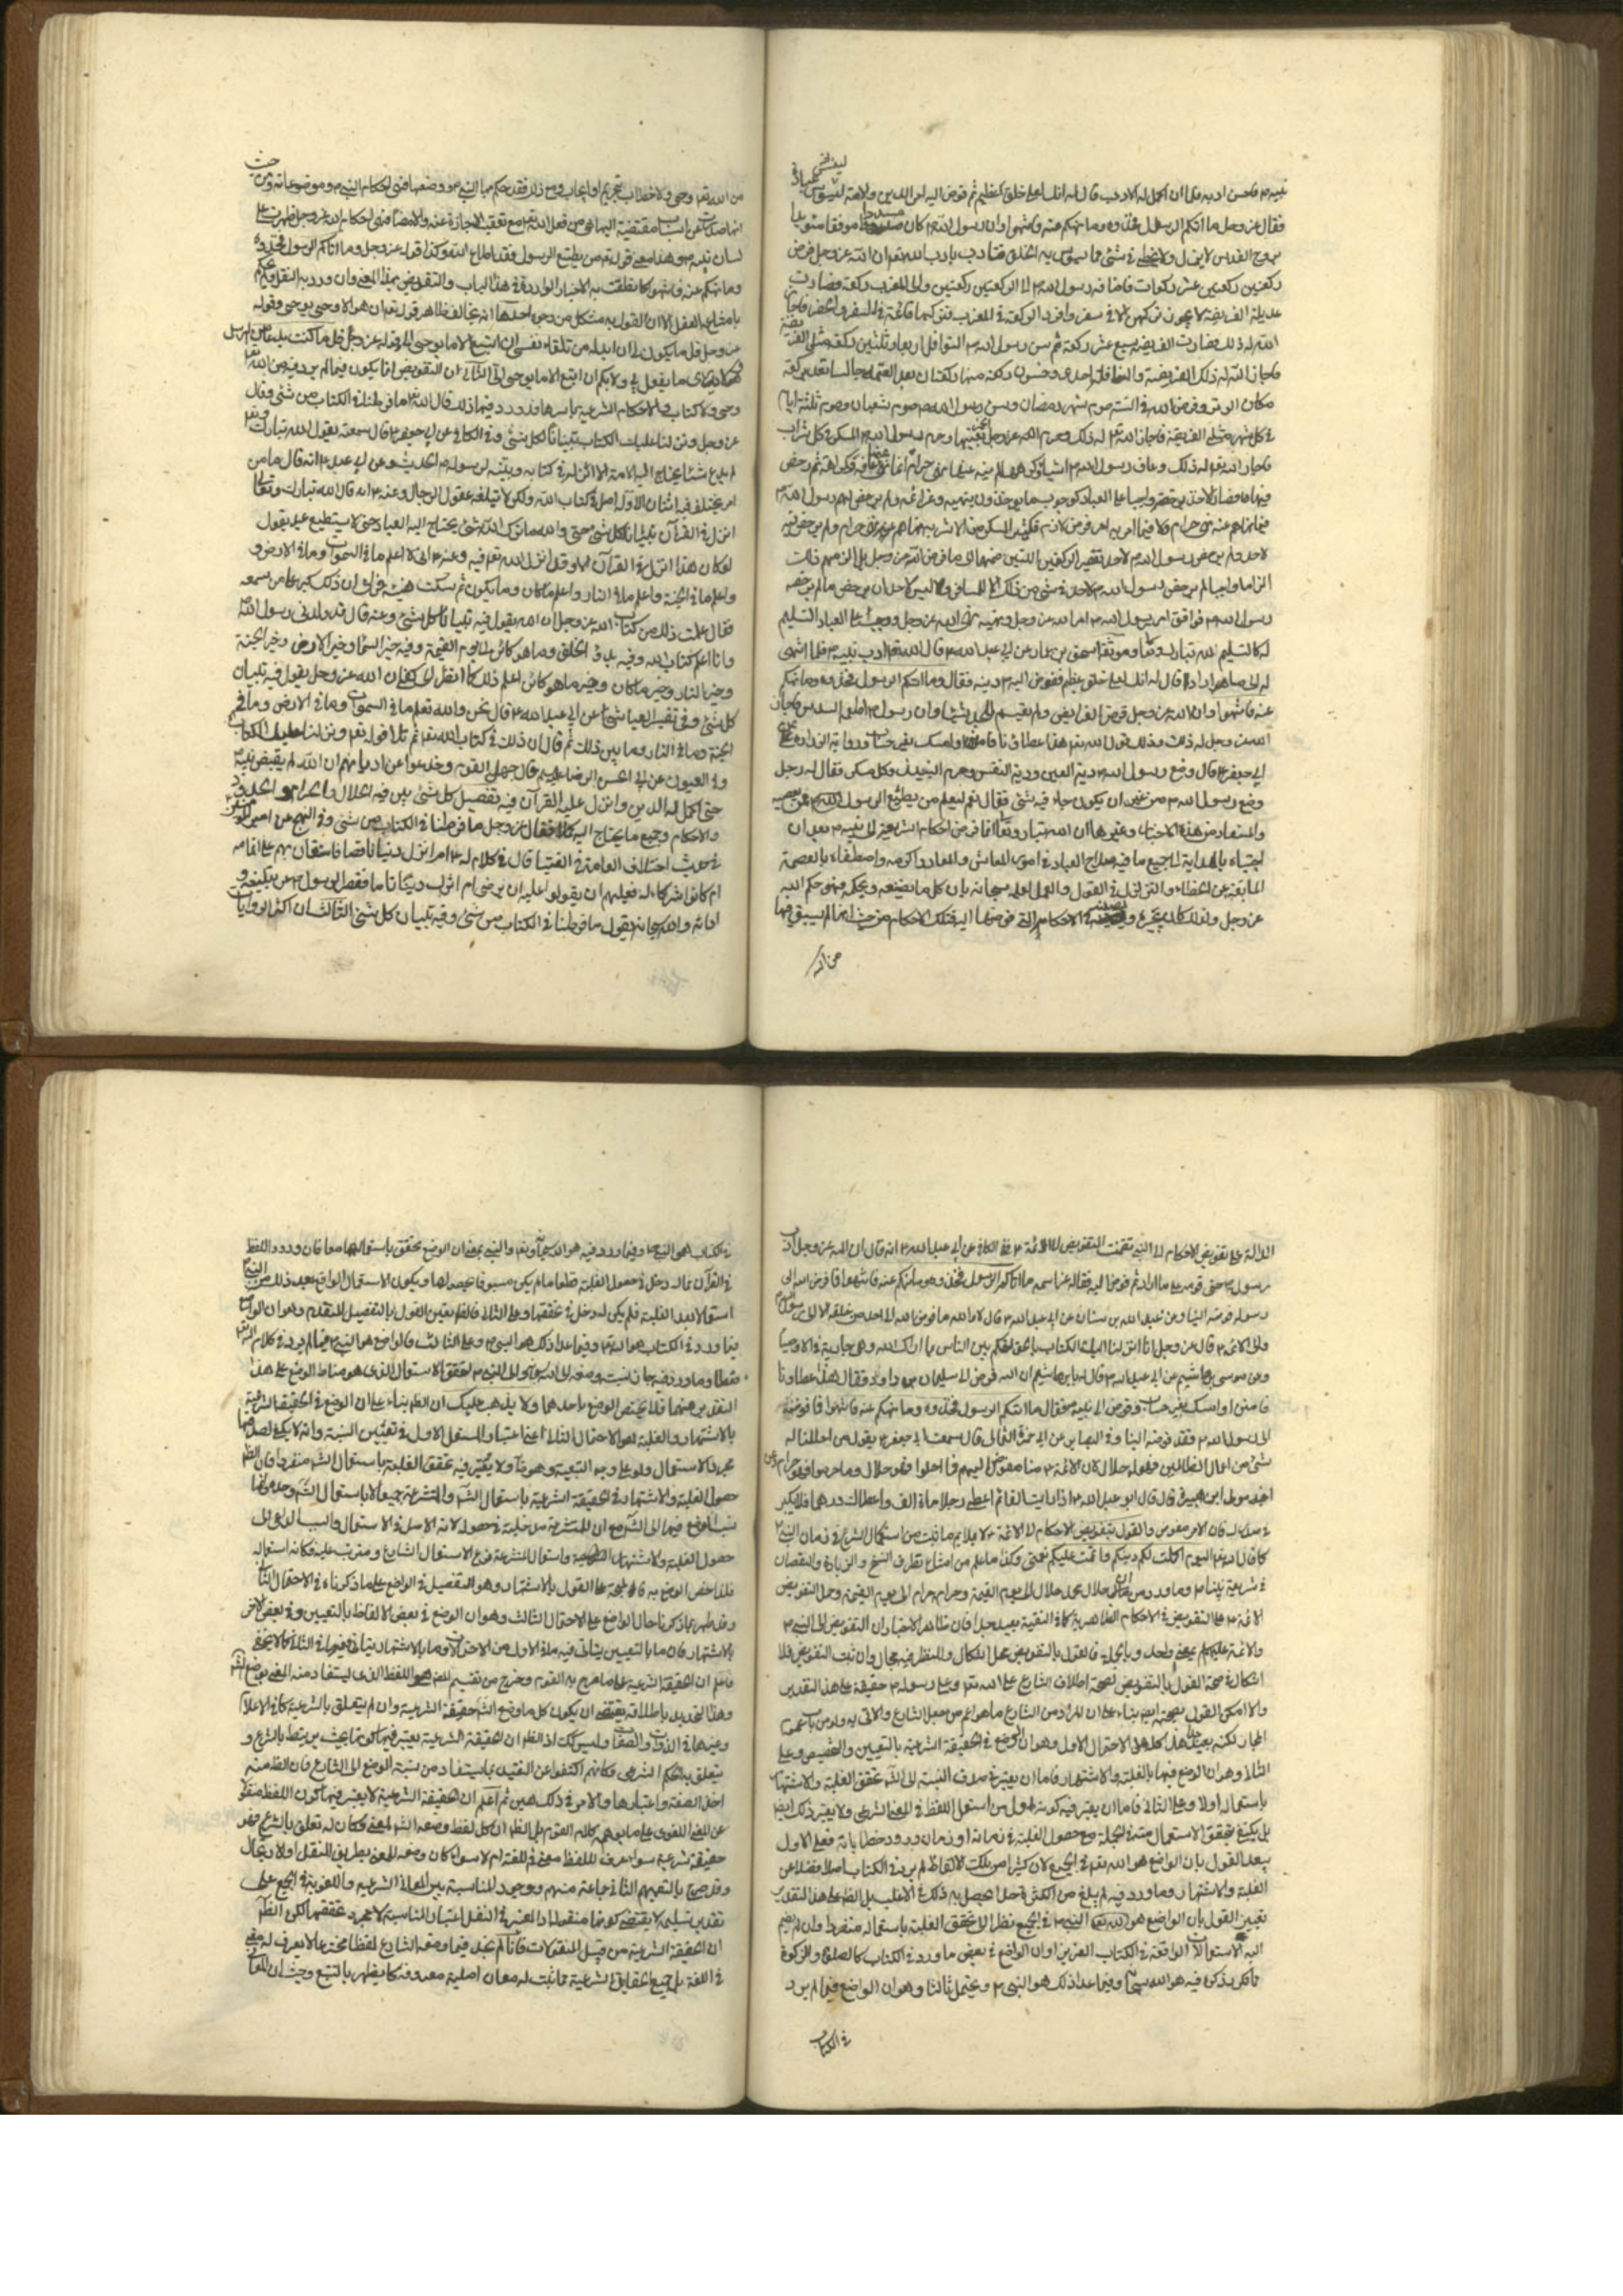 نبيه ص فاحسن ادبه فلما ان اكمل له الادب قال له انك لعلى خلق عظيم ثم فوض اليه امر الدين والامة ليسوس عباده
فقال عز وجل ما اتيكم الرسول فخذوه وما نهيكم عنه فانتهوا وان رسول الله ص كان مسددا موفقا مؤيدا
بروح القدس لا يزل ولا يخطئ في شئ مما يسوس به الخلق فتادب باداب الله ثم ان الله عز وجل فرض
ركعتين ركعتين عشر ركعات فاضاف رسول الله ص الى الركعتين ركعتين والى المغرب ركعة فصارت
عديلة الفريضة لا يجوز تركهن الا في سفر وافرد الركعة في المغرب فتركها قائمة في السفر والحضر فاجاز
الله له ذلك فصارت الفريضة سبع عشر ركعة ثم سن رسول الله ص النوافل اربعا وثلثين ركعة مثلي الفريضة
فاجاز الله له ذلك الفريضة والنافلة احدى وخمسون ركعة منها ركعتان بعد العتمة جالسا تعد بركعة
مكان الوتر وفرض الله في السنة صوم شهر رمضان وسن رسول الله ص صوم شعبان وصوم ثلثة ايام
في كل شهر مثلي الفريضة فاجاز الله له ذلك وحرم الله عز وجل الخمر بعينها وحرم رسول الله ص المسكر من كل شراب
فاجاز الله له ذلك وعاف رسول الله ص اشياء وكرهها لم ينه عنها نهي حرام انما نهى عنها نهي عافة وكراهة ثم رخص
فيها فصار الاخذ برخصه واجبا على العباد كوجوب ما ياخذون بنهيه وعزائمه ولم يرخص لهم رسول الله ص
فيما نهاهم عنه نهي حرام ولا فيما امر به امر فرض لازم فكثير المسكر من الاشربة نهاهم عنه نهي حرام ولم يرخص فيه
لاحد ولم يرخص رسول الله ص لاحد تقصير الركعتين اللتين ضمهما الى ما فرض الله عز وجل بل الزمهم ذلك
الزاما واجبا لم يرخص رسول الله ص لاحد في شئ من ذلك الا للمسافر وليس لاحد ان يرخص ما لم يرخصه
رسول الله ص فوافق امر رسول الله ص امر الله عز وجل ونهيه نهي الله عز وجل ووجب على العباد التسليم
له كالتسليم لله تبارك وتعالى وموثقة اسحق بن عمار عن ابي عبد الله ع قال ان الله تعالى ادب نبيه ص فلما انتهى
به الى ما اراد قال له انك لعلى خلق عظيم ففوض اليه دينه فقال وما اتيكم الرسول فخذوه وما نهيكم
عنه فانتهوا وان الله عز وجل فرض الفرايض ولم يقسم للجد شيئا وان رسول الله ص اطعمه السدس فاجاز
الله عز وجل له ذلك وذلك قول الله تعالى هذا عطاؤنا فامنن او امسك بغير حساب ورواية زرارة عن
ابي جعفر ع قال وضع رسول الله ص دية العين ودية النفس وحرم النبيذ وكل مسكر فقال له رجل
وضع رسول الله ص من غير ان يكون جاء فيه شئ فقال نعم ليعلم من يطيع الرسول ممن يعصيه
والمستفاد من هذه الاخبار وغيرها ان الله تبارك وتعالى انما فوض احكام الشريعة الى نبيه ص بعد ان
اجتباه بالهداية الى جميع ما فيه صلاح العباد في امور المعاش والمعاد واكرمه واصطفاه بالعصمة
المانعة عن الخطاء والزلل في القول والعمل لعلمه سبحانه بان كل ما يضعه ويحكم به فهو حكم الله
عز وجل
من الله
من الله تعالى وحي ولا خطاب بتحريم او ايجاب ونحو ذلك فقد حكم بها النبي ص ووضعها فهي احكام النبي ص وموضوعاته ومن حيث
لسان نبيه ص وهذا معنى قوله تعالى من يطع الرسول فقد اطاع الله وكذا قوله عز وجل وما اتاكم الرسول فخذوه
وما نهيكم عنه فانتهوا كما نطقت به الاخبار الواردة في هذا الباب والتفويض بهذا المعنى وان ورد به النقل ولم يحكم
بامتناعه العقل الا ان القول به مشكل من وجوه احدها انه مخالف لظاهر قوله تعالى ان هو الا وحي يوحى وقوله
عز وجل قل ما يكون لي ان ابدله من تلقاء نفسي ان اتبع الا ما يوحى الي وقوله عز وجل قل ما كنت بدعا من الرسل
وما ادري ما يفعل بي ولا بكم ان اتبع الا ما يوحى الي الثاني ان التفويض انما يكون فيما لم يرد فيه من الله تعالى
وحي ولا كتاب والاحكام الشرعية باسرها قد ورد فيها ذلك قال الله تعالى ما فرطنا في الكتاب من شئ وقال
عز وجل ونزلنا عليك الكتاب تبيانا لكل شئ وفي الكافي عن ابي جعفر ع قال سمعته يقول ان الله تبارك وتعالى
لم يدع شيئا يحتاج اليه الامة الا انزله في كتابه وبينه لرسوله ص الحديث وعن ابي عبد الله ع انه قال ما من
امر يختلف فيه اثنان الا وله اصل في كتاب الله ولكن لا تبلغه عقول الرجال وعنه ع انه قال ان الله تبارك وتعالى
انزل في القرآن تبيان كل شئ حتى والله ما ترك الله شئ يحتاج اليه العباد حتى لا يستطيع عبد يقول
لو كان هذا انزل في القرآن الا وقد انزل الله تعالى فيه وعنه ع اني لاعلم ما في السموات وما في الارض و
واعلم ما في الجنة واعلم ما في النار واعلم ما كان وما يكون ثم سكت هنيئة فراى ان ذلك كبر على من سمعه
فقال علمت ذلك من كتاب الله عز وجل ان الله يقول فيه تبيانا كل شئ وعنه قال قد ولدني رسول الله ص
وانا اعلم كتاب الله وفيه بدؤ الخلق وما هو كائن الى يوم القيمة وفيه خبر السماء وخبر الارض وخبر الجنة
وخبر النار وخبر ما كان وخبر ما هو كائن اعلم ذلك كما انظر الى كفي ان الله عز وجل يقول فيه تبيان
كل شئ وفي تفسير العياشي عن ابي عبد الله ع قال نحن والله نعلم ما في السموات وما في الارض وما في
الجنة وما في النار وما بين ذلك ثم قال ان ذلك في كتاب الله تعالى ثم تلا قوله تعالى ونزلنا عليك الكتاب
وفي العيون عن ابي الحسن الرضا عليه السلام قال جهل القوم وخدعوا عن اديانهم ان الله لم يقبض نبيه
حتى اكمل له الدين وانزل عليه القرآن فيه تفصيل كل شئ بين فيه الحلال والحرام والحدود
والاحكام وجميع ما يحتاج اليه كملا فقال عز وجل ما فرطنا في الكتاب من شئ وفي النهج عن امير المؤمنين ع
في حديث اختلاف العلماء في الفتيا قال في كلام له ع ام انزل دينا ناقصا فاستعان بهم على اتمامه
ام كانوا شركاء له فعليهم ان يقولوا وعليه ان يرضى ام انزل دينا تاما فقصر الرسول ص عن تبليغه و
ادائه والله سبحانه يقول ما فرطنا في الكتاب من شئ وفيه تبيان كل شئ الثالث ان اكثر الروايات
الدالة على تفويض الاحكام الى النبي تضمنت التفويض الى الائمة ع ففي الكافي عن ابي عبد الله ع انه قال ان الله عز وجل ادب
رسوله ص حتى قومه على ما اراد ثم فوض اليه فقال عز اسمه ما اتاكم الرسول فخذوه وما نهيكم عنه فانتهوا فما فوض الله الى
رسوله فوضه الينا وعن عبد الله بن سنان عن ابي عبد الله ع قال لا والله ما فوض الله الى احد من خلقه الا الى رسول الله ص
والى الائمة ع قال عز وجل انا انزلنا اليك الكتاب بالحق لتحكم بين الناس بما اراك الله وهي جارية في الاوصياء
وعن موسى بن اشيم عن ابي عبد الله ع قال له يا بن اشيم ان الله فوض الى سليمان بن داود فقال هذا عطاؤنا
فامنن او امسك بغير حساب وفوض الى نبيه ص فقال ما اتيكم الرسول فخذوه وما نهيكم عنه فانتهوا فما فوضه
الى رسول الله ص فقد فوضه الينا وفي البصاير عن ابي حمزة الثمالي قال سمعت ابا جعفر ع يقول من احللنا له
شئ من اعمال الظالمين فهو له حلال لان الائمة ع منا مفوض اليهم فما احلوا فهو حلال وما حرموا فهو حرام وعن
في صدرك فان الامر مفوض والقول بتفويض الاحكام الى الائمة ع لا يلايم ما ثبت من استكمال الشرع في زمان النبي ص
كما قال الله تعالى اليوم اكملت لكم دينكم واتممت عليكم نعمتي وكذا ما علم من امتناع تطرق النسخ والزيادة والنقصان
في شريعة نبينا ص وما ورد من ان حلال محمد حلال الى يوم القيمة وحرامه حرام الى يوم القيمة وحمل التفويض
الائمة ع على التفويض في الاحكام الظاهرية كما في التقية بعيد جدا فان ظاهر الاخبار ان التفويض الى النبي ص
والائمة عليهم السلام بمعنى واحد وبالجملة فالقول بالتفويض محل اشكال وللنظر فيه مجال وان ثبت التفويض فلا
اشكال في صحة القول بالتفويض لصحة اطلاق الشارع على الله تعالى وعلى رسوله ص حقيقة على هذا التقدير
والا امكن القول بصحته ايضا بناء على ان المراد من الشارع ما هو اعم من جعل الشارع والاتي به ولو من باب عموم
المجاز لكنه بعيد هذا كله على الاحتمال الاول وهو ان الوضع في الحقيقة الشرعية بالتعيين والتخصيص وعلى
الثاني وهو ان الوضع فيها بالغلبة والاشتهار فاما ان يعتبر في صدق النسبة الى الشارع تحقق الغلبة والاشتهار
باستعماله اولا وعلى الثاني فاما ان يعتبر فيه كونه اول من استعمل اللفظ في المعنى الشرعي ولا يعتبر ذلك ايضا
بل يكتفي بتحقق الاستعمال منه في الجملة مع حصول الغلبة في زمانه او زمان ورود خطاباته فعلى الاول
يبعد القول بان الواضع هو الله تعالى في الجميع لان كثيرا من تلك الالفاظ لم يرد في الكتاب اصلا فضلا عن
تعيين القول بان الواضع هو النبي ص في الجميع نظرا الى تحقق الغلبة باستعماله منفردا وان لم يضم
اليه الاستعمالات الواقعة في الكتاب العزيز او ان الواضع في بعض ما ورد في الكتاب كالصلوة والزكوة
ما تكرر ذكره فيه هو الله سبحانه وفيما عدا ذلك هو النبي ص ويحتمل ثالثا وهو ان الواضع فيما لم يرد
في الكتاب
في الكتاب هو النبي ص وفيما ورد فيه هو الله سبحانه وتعالى والنبي بمعنى ان الوضع تحقق باستعمالهما معا فان ورود اللفظ
في القرآن مما له دخل في حصول الغلبة قطعا ما لم يكن مسبوقا بحصولها ويكون الاستعمال الواقع بعد ذلك من النبي ص
استعمالا بعد الغلبة فلم يكن له دخل في تحققها وعلى الثاني فالظاهر تعين القول بالتفصيل المتقدم وهو ان الواضع
فيما ورد في الكتاب هو الله تعالى وفيما عدا ذلك هو النبي ص وعلى الثالث فالواضع هو النبي ص فيما لم يرد في كلام الله تعالى
بالاشتهار والغلبة هو الاحتمال الثاني اعني اعتبار المستعمل الاول في تعيين النسبة وانه لا يكفي لصدقها
مجرد الاستعمال ولو على وجه التبعية وهو ولا يعتبر فيه تحقق الغلبة باستعمال الشارع منفردا فان الظاهر
حصول الغلبة والاشتهار في الحقيقة الشرعية باستعمال الشارع والمتشرعة جميعا لا باستعمال الشارع وحده وانما
ينسب الوضع فيها الى الشارع مع ان للمتشرعة مدخلية في حصوله لانه الاصل في الاستعمال والسبب الداعي الى
حصول الغلبة والاشتهار واستعمال المتشرعة فرع لاستعمال الشارع ومترتب عليه فكانه استعماله
وقد ظهر مما ذكرنا حال الواضع على الاحتمال الثالث وهو ان الوضع في بعض الالفاظ بالتعيين وفي بعض الاخر
بالاشتهار فان ما بالتعيين يتاتى فيه ما في الاول من الاحتمالات وما بالاشتهار يتاتى فيه ما في الثاني كما لا يخفى
واعلم ان الحقيقة الشرعية على ما صرح به القوم وخرج من تقسيم اللفظ هو اللفظ الذي يستفاد منه المعنى بوضع الشارع
وهذا التحديد باطلاقه يقتضي ان يكون كل ما وضع الشارع حقيقة شرعية وان لم يتعلق بالشرعية كما في الاعلام
وغيرها من الذوات والصفات وليس كذلك اذ الظاهر ان الحقيقة الشرعية يعتبر فيها كونها بحيث يرتبط بالشرع و
يتعلق به الحكم الشرعي فكانهم اكتفوا عن التقييد بما يستفاد من نسبة الوضع الى الشارع فان الظاهر منه
اخذ الصفة واعتبارها والامر في ذلك هين ثم اعلم ان الحقيقة الشرعية لا يعتبر فيها كون اللفظ منقولا
عن المعنى اللغوي على ما يوهمه كلام القوم بل الظاهر ان كل لفظ وضعه الشارع لمعنى وكان له تعلق بالشرع فهو
حقيقة شرعية سواء عرف لللفظ معنى في اللغة ام لا سواء كان وضعه للمعنى بطريق النقل او الارتجال
وقد صرح بالتعميم الثاني جماعة منهم ووجود المناسبة بين المعاني الشرعية واللغوية في الجميع على
تقدير تسليمه لا يقتضي كونها منقولة اذ المعتبر في النقل اعتبار المناسبة لا مجرد تحققها لكن الظاهر
ان الحقيقة الشرعية من قبيل المنقولات فانا لم نجد فيما وضعه الشارع لفظا مخترعا لا يعرف له معنى
في اللغة بل جميع الحقايق الشرعية مما ثبت له معان اصلية معروفة كما يظهر بالتتبع وحيث ان المعاني